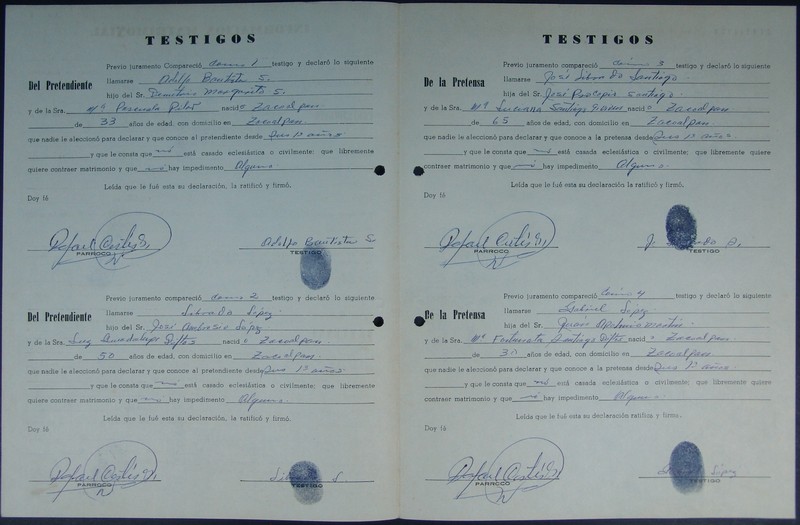 TESTIGOS
Previo juramento Compareció como 1 testigo y declaró lo siguiente
Del Pretendiente
llamarse Adolfo Bautista S.
hijo del Sr. Demetrio Margarito S.
y de la Sra. Mª Pascuala nació Zacualpan
de 33 años de edad, con domicilio en Zacualpan
que nadie le aleccionó para declarar y que conoce al pretendiente desde años
y que le consta que no está casado eclesiástica o civilmente; que libremente
quiere contraer matrimonio y que no hay impedimento Alguno
Leída que le fué esta su declaración, la ratificó y firmó.
Doy fé
Rafael Cortés
Adolfo Bautista S
PARROCO
TESTIGO
Previo juramento compareció como 2 testigo y declaró lo siguiente
Del Pretendiente
llamarse López
hijo del Sr. José Ambrosio López
y de la Sra. Luz nació Zacualpan
de 50 años de edad, con domicilio en Zacualpan
que nadie le aleccionó para declarar y que conoce al pretendiente desde años
y que le consta que no está casado eclesiástica o civilmente; que libremente
quiere contraer matrimonio y que no hay impedimento Alguno
Leída que le fué esta su declaración, la ratificó y firmó.
Doy fé
Rafael Cortés
PARROCO
TESTIGO
TESTIGOS
Previo juramento compareció como 3 testigo y declaró lo siguiente
De la Pretensa
llamarse José Santiago
hijo del Sr. José Santiago
y de la Sra. Mª Luciana Santiago nació Zacualpan
de 65 años de edad, con domicilio en Zacualpan
que nadie le aleccionó para declarar y que conoce a la pretensa desde años
y que le consta que no está casada eclesiástica o civilmente; que libremente quiere
contraer matrimonio y que no hay impedimento Alguno
Leída que le fué esta su declaración la ratificó y firmó.
Doy fé
Rafael Cortés
PARROCO
TESTIGO
Previo juramento compareció como 4 testigo y declaró lo siguiente
De la Pretensa
llamarse Gabriel López
hijo del Sr. Juan
y de la Sra. Mª Fortunata Santiago nació Zacualpan
de años de edad, con domicilio en Zacualpan
que nadie le aleccionó para declarar y que conoce a la pretensa desde años
y que le consta que no está casada eclesiástica o civilmente; que libremente quiere
contraer matrimonio y que no hay impedimento Alguno
Leída que le fué esta su declaración ratificó y firmó.
Doy fé
Rafael Cortés
López
PARROCO
TESTIGO